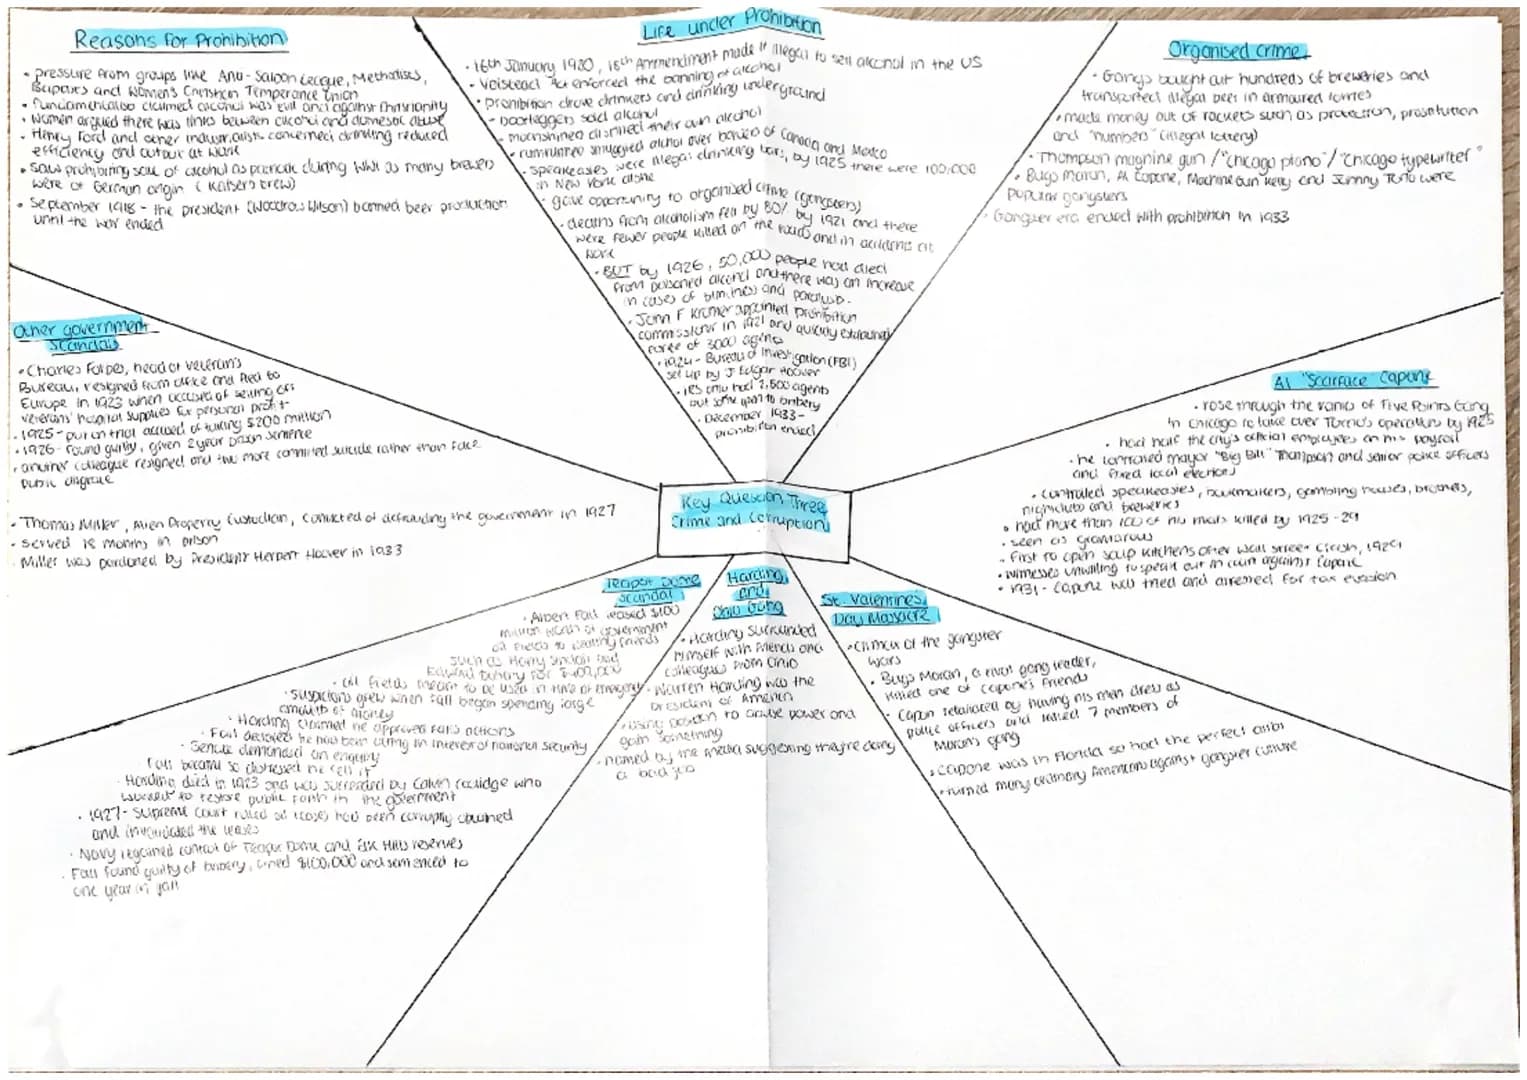 Reasons For Prohibition
• pressure from groups like Anti-Saloon League, Methodists,
Baptists and Women's Christian Temperance Union
• fundamentalists claimed alcohol was evil and against Christianity
• Women argued there was links between alcohol and domestic abuse
• Henry Ford and other industrialists concerned drinking reduced
efficiency and output at work
• saw prohibiting sale of alcohol as patriotic during WWI as many brewers
were of German origin (Kaisers brew)
• September 1918 - the president (Woodrow Wilson) banned beer production
until the war ended
Life under Prohibition
• 16th January 1920, 18th Ammendment made it illegal to sell alcohol in the US
• Volstead Act enforced the banning of alcohol
• prohibition drove drinkers and drinking underground
• bootleggers sold alcohol
• moonshiners distilled their own alcohol
• rumrunners smuggled alcohol over borders of Canada and Mexico
• speakeasies were illegal drinking bars, by 1925 there were 100,000
in New York alone
• gave opportunity to organised crime (gangsters)
• deaths from alcoholism fell by 80% by 1921 and there
were fewer people killed on the roads and in accidents at
work
• BUT by 1926, 50,000 people had died
from poisoned alcohol and there was an increase
in cases of blindness and paralysis.
• John F Kramer appointed prohibition
commissioner in 1921 and quickly established
force of 3000 agents
• 1924 - Bureau of Investigation (FBI)
set up by J Edgar Hoover
• IRS only had 2,500 agents
but some open to bribery
• December 1933 -
prohibition ended
Organised crime
• Gangs bought out hundreds of breweries and
transported illegal beer in armoured lorries
• made money out of rackets such as protection, prostitution
and "numbers" (illegal lottery)
• Thompson machine gun / "Chicago piano" / "Chicago typewriter"
• Bugs Moran, Al Capone, Machine Gun Kelly and Johnny Torrio were
popular gangsters
• Gangster era ended with prohibition in 1933
Other government
scandals
• Charles Forbes, head of Veteran's
Bureau, resigned from office and fled to
Europe in 1923 when accused of selling off
veterans' hospital supplies for personal profit
• 1925 - put on trial accused of taking $200 million
• 1926 - found guilty, given 2 year prison sentence
• another colleague resigned and two more commited suicide rather than face
public disgrace
• Thomas Miller, Alien Property Custodian, convicted of defrauding the government in 1927
• served 18 months in prison
• Miller was pardoned by President Herbert Hoover in 1933
Al "Scarface" Capone
• rose through the ranks of Five Points Gang
in Chicago to take over Torrio's operations by 1925
• had half the city's official employees on his payroll
• he controlled mayor "Big Bill" Thompson and senior police officers
and fixed local elections
• controlled speakeasies, bookmakers, gambling houses, brothels,
nightclubs and breweries
• had more than 100 of his rivals killed by 1925-29
• seen as glamarous
• first to open soup kitchens after Wall Street Crash, 1929
• witnesses unwilling to speak out in court against Capone
• 1931 - Capone was tried and arrested for tax evasion
Key Question Three
Crime and Corruption
Teapot Dome
Scandal
• Albert Fall leased $100
million worth of government
oil fields to wealthy friends
such as Harry Sinclair and
Edward Doheny for
• oil fields meant to be used in time of emergency
• suspicions grew when Fall began spending large
amounts of money
• Harding claimed he approved Fall's actions
• Fall declared he had been acting in interest of national security
• Senate demanded an enquiry
Fall became so distressed he fell ill
• Harding died in 1923 and was succeeded by Calvin Coolidge who
worked to restore public faith in the government
• 1927 - Supreme Court ruled oil leases had been corruptly obtained
and invalidated the leases
• Navy regained control of Teapot Dome and Elk Hills reserves
• Fall found guilty of bribery, fined $100,000 and sentenced to
one year in jail
Harding
and
Ohio Gang
• Harding surrounded
himself with friends and
colleagues from Ohio
• Warren Harding was the
president of America
• using position to abuse power and
gain something
• named by the media suggesting they're doing
a bad job
St. Valentines
Day Massacre
• climax of the gangster
wars
• Bugs Moran, a rival gang leader,
killed one of Capone's friends
• Capon retaliated by having his men dress as
police officers and killed 7 members of
Moran's gang
• Capone was in Florida so had the perfect alibi
• turned many ordinary Americans against gangster culture